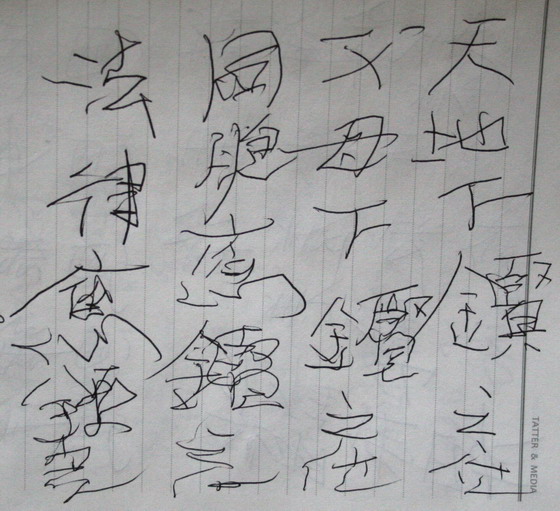 天地下鑑之位
父母下鑑之位
同胞應鑑之位
法律應鑑之位
TATTER & MEDIA